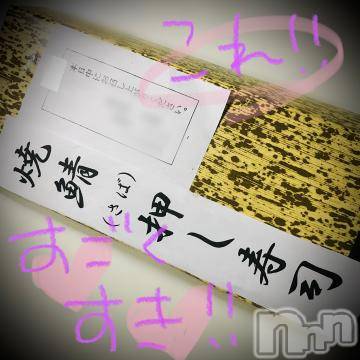 これ!!
本日中にお召し上がりください。
焼鯖(さば)押し寿司
すごく
すき!!